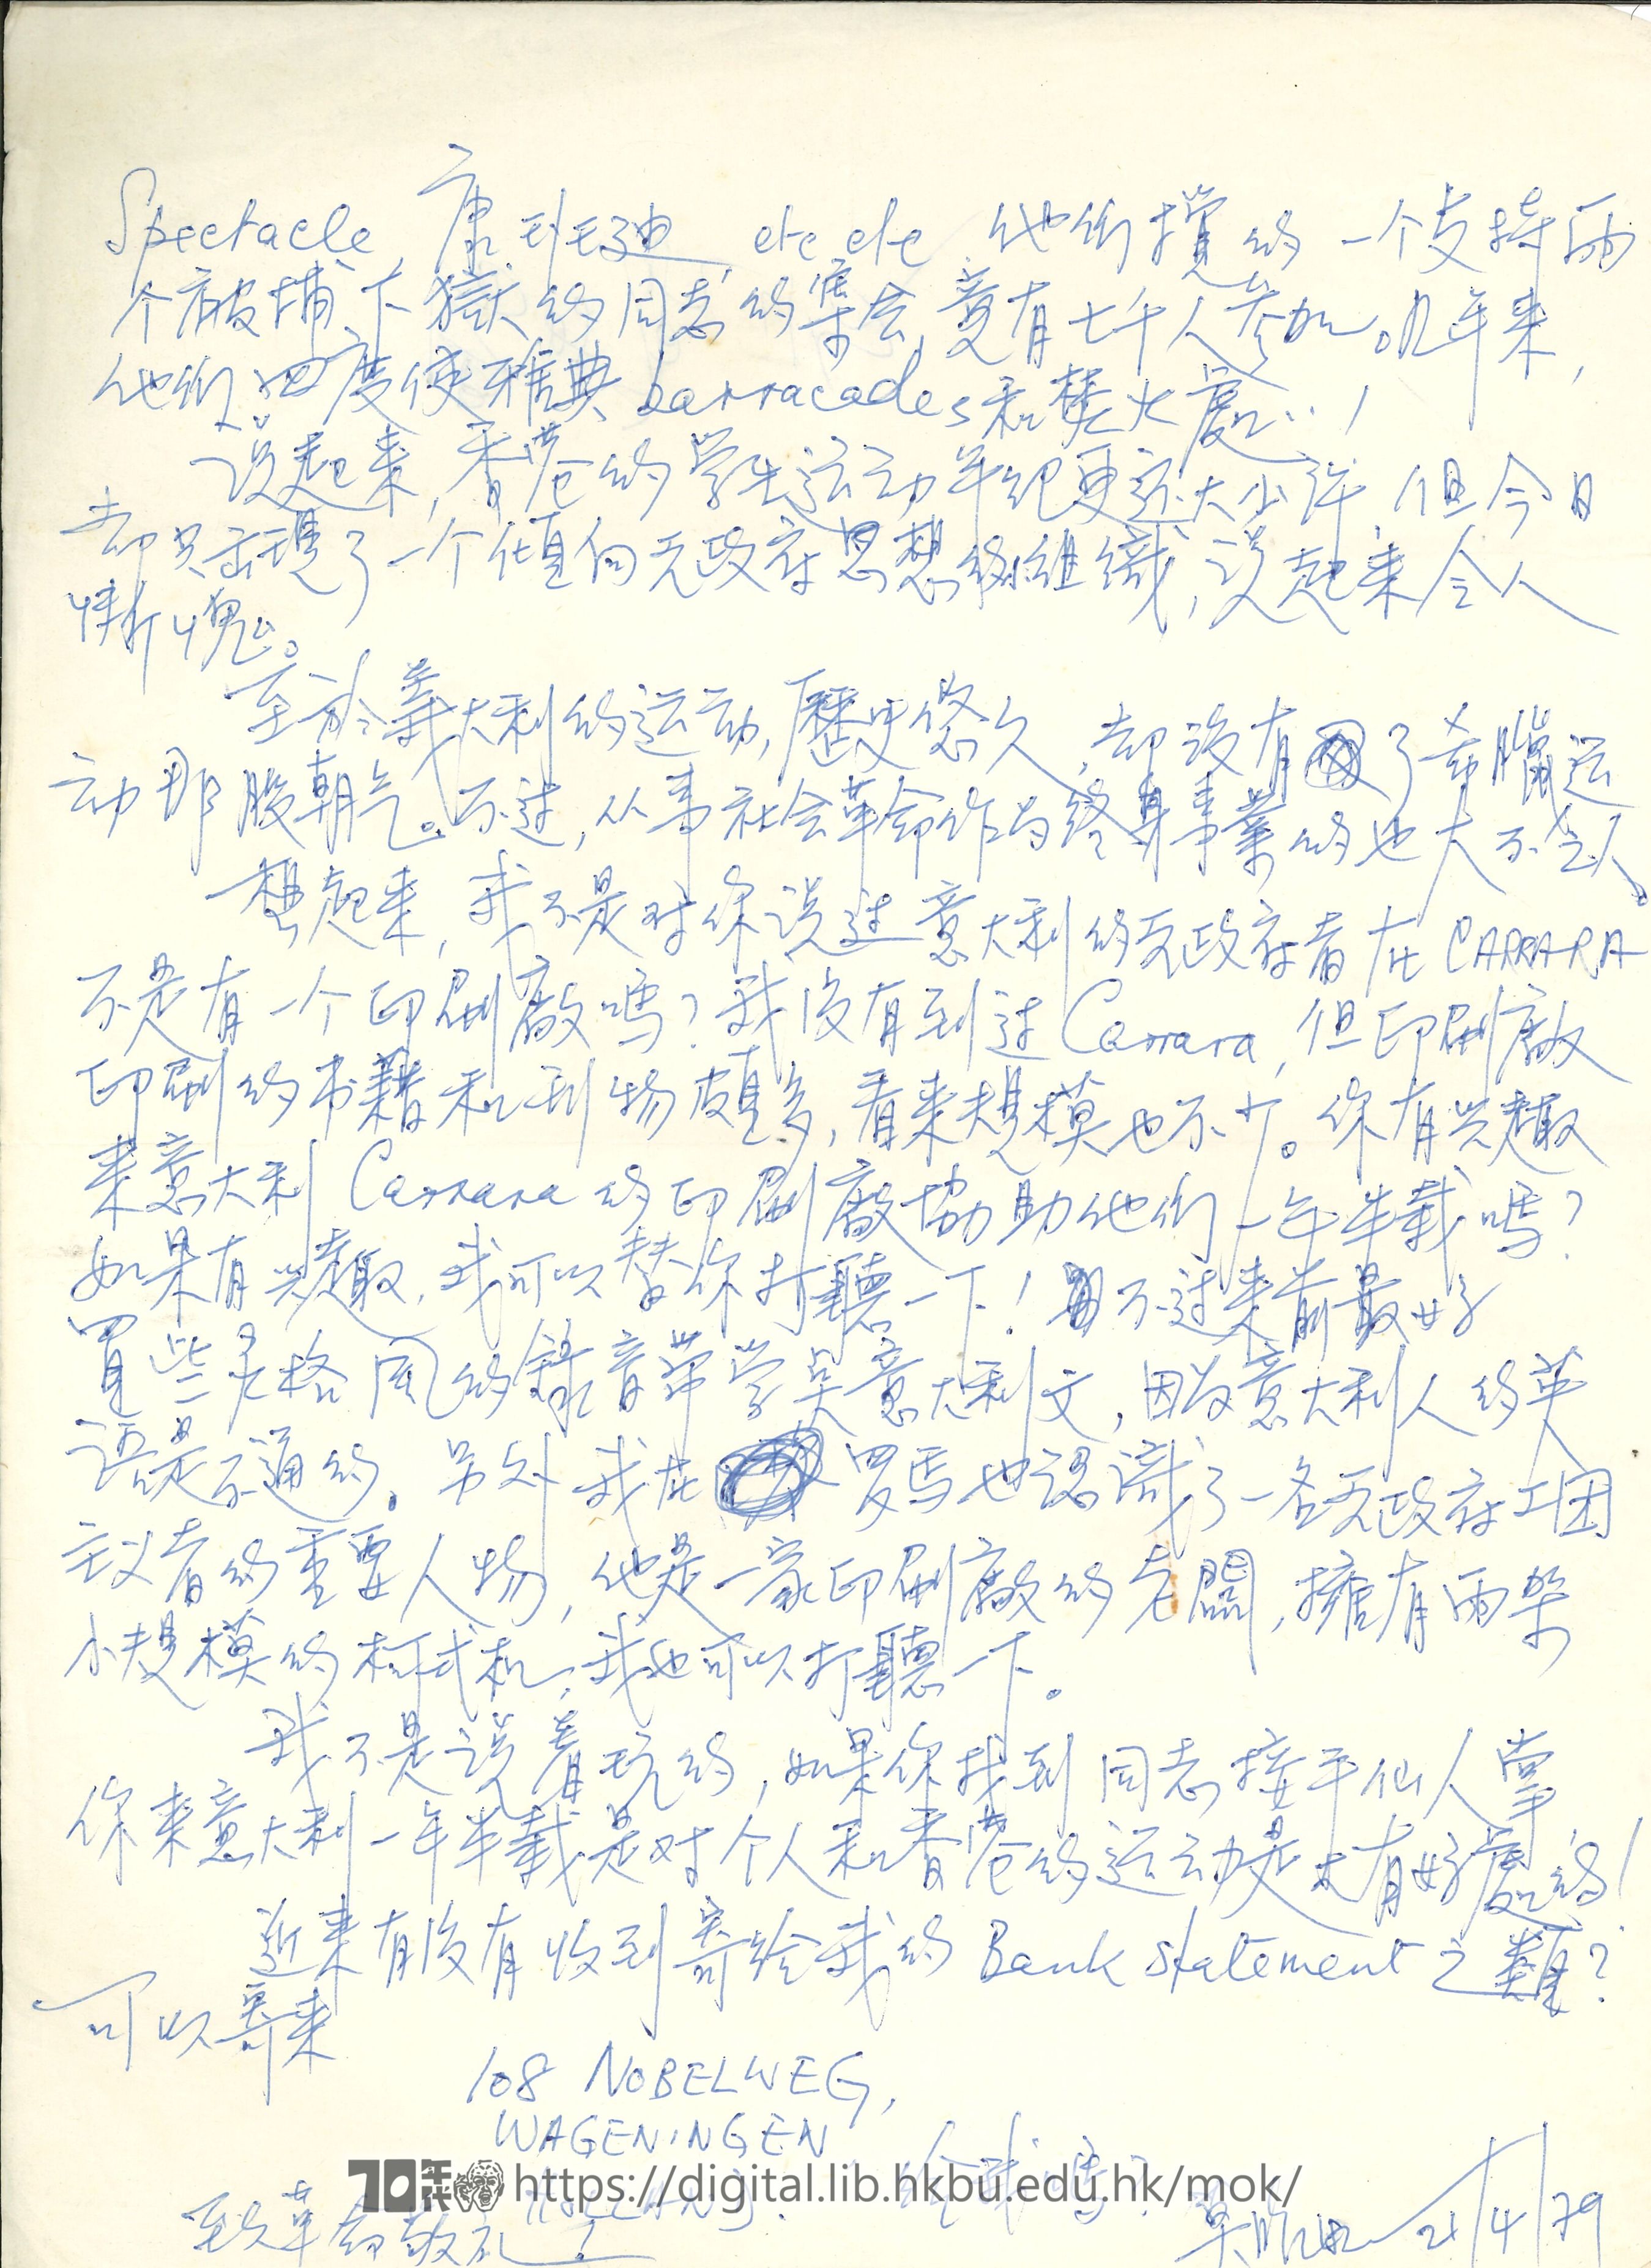 Spectacle, 康班迪, etc etc 他们搅的一个支持兩
个被捕下獄的同志的集会, 竟有七千人参加。几年来,
他们四度使雅典 barracades 和焚火處處!
说起来, 香港的学生运动年纪更还大少许, 但今日
却只出现了一个傾向无政府思想的組織, 说起来令人
慚愧。
至於義大利的运动, 歷史悠久, 却没有了希臘运
动那股朝气。不过, 从事社会革命作为终身事業的也大不乏人。
想起来, 我不是对你说过意大利的无政府者在 CARRARA
不是有一个印刷廠嗎? 我没有到过 Carrara, 但印刷廠
印刷的书籍和刊物頗多, 看来規模也不少。你有兴趣
来意大利 Carrara 的印刷廠協助他们一年半載嗎?
如果有兴趣, 我可以替你打聽一下! 不过来前最好
買些灵格风的錄音帶学点意大利文, 因为意大利人的英
语是不通的。另外我在罗馬也認識了一名无政府工团
主义者的重要人物, 他是一家印刷廠的老闆, 擁有兩架
小規模的柯式机, 我也可以打聽一下。
我不是说着玩的, 如果你找到同志接手仙人掌,
你来意大利一年半載是对个人和香港的运动是大有好處的!
近来有没有收到寄给我的 Bank statement 之類?
可以寄来
108 NOBELWEG,
WAGENINGEN
给我嗎?
70年代 https://digital.lib.hkbu.edu.hk/mok/
致革命敬礼!
21/4/79